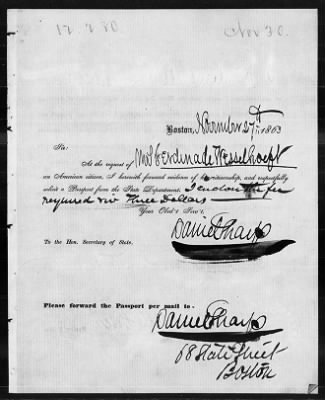 Boston, November 27th 1863
Sir:
At the request of Mrs Ferdinande Wesselhoeft
an American citizen, I herewith forward evidence of her citizenship, and respectfully
solicit a Passport from the State Department. I enclose the fee
required viz Three Dollars
Your Obd't Serv't,
Daniel Sharp
To the Hon. Secretary of State.
Please forward the Passport per mail to -
Daniel Sharp
68 State Street
Boston